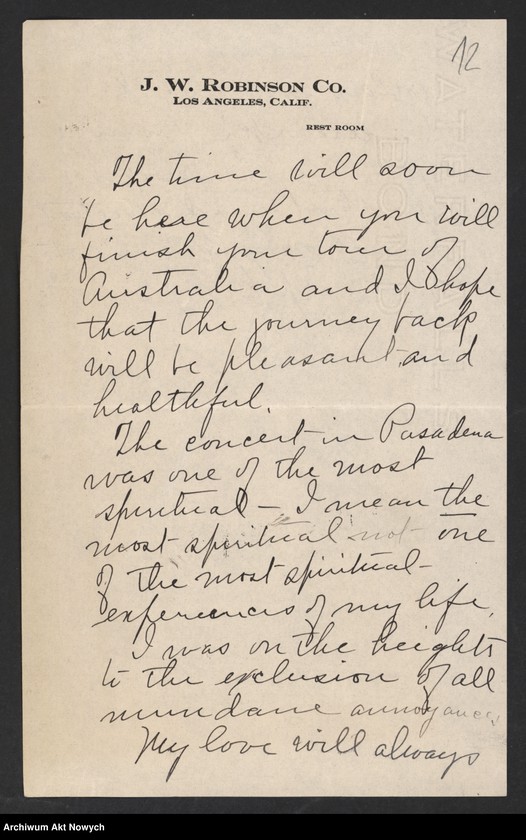 12
J. W. ROBINSON CO.
LOS ANGELES, CALIF.
REST ROOM
The time will soon
be here when you will
finish your tour of
Australia and I hope
that the journey back
will be pleasant and
healthful.
The concert in Pasadena
was one of the most
spiritual – I mean the
most spiritual not one
of the most spiritual –
experiences of my life.
I was on the heights
to the exclusion of all
mundane annoyances.
My love will always
Archiwum Akt Nowych